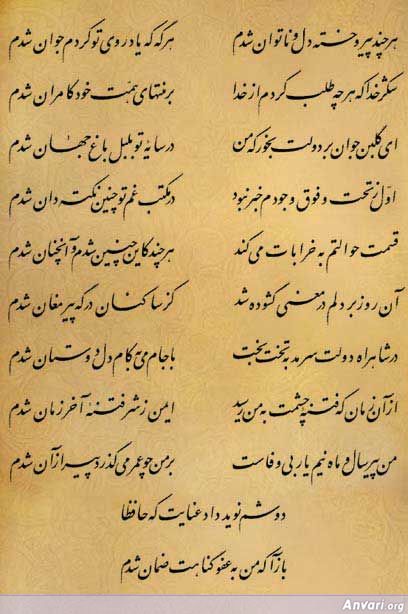 هر چند پیر و خسته دل و ناتوان شدم هرگه که یاد روی تو کردم جوان شدم
شکر خدا که هر چه طلب کردم از خدا بر منتهای همت خود کامران شدم
ای گلبن جوان بر دولت بخور که من در سایهٔ تو بلبل باغ جهان شدم
اول ز تحت و فوق وجودم خبر نبود در مکتب غم تو چنین نکته دان شدم
قسمت حوالتم به خرابات می کند هر چند کاین چنین شدم و آنچنان شدم
آن روز بر دلم در معنی گشوده شد کز ساکنان درگه پیر مغان شدم
در شاهراه دولت سرمد به تخت بخت با جام می به کام دل دوستان شدم
از آن زمان که فتنه چشمت به من رسید ایمن ز شر فتنهٔ آخر زمان شدم
من پیر سال و ماه نیم یار بی وفاست بر من چو عمر می گذرد پیر از آن شدم
دوشم نوید داد عنایت که حافظا
بازآ که من به عفو گناهت ضمان شدم
Anvari.org